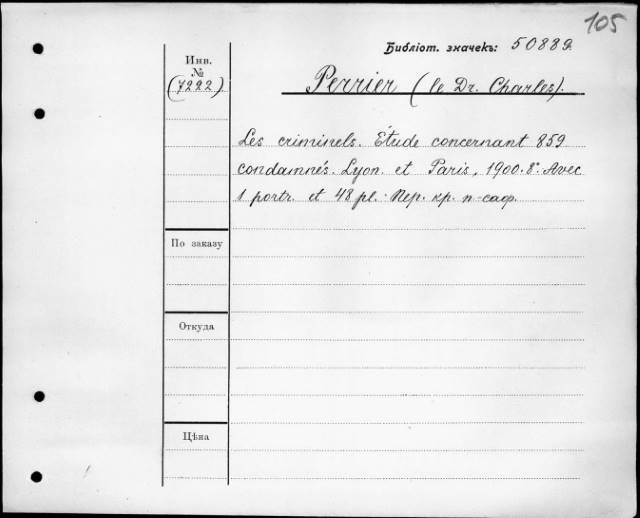 105
Библіот. значекъ: 50889
Инв.
№
(7222)
Perrier (le Dr. Charles).
Les criminels. Étude concernant 859
condamnés. Lyon et Paris, 1900. 8°. Avec
1 portr. et 48 pl. Пер. кр. п-саф.
По заказу
Откуда
Цѣна